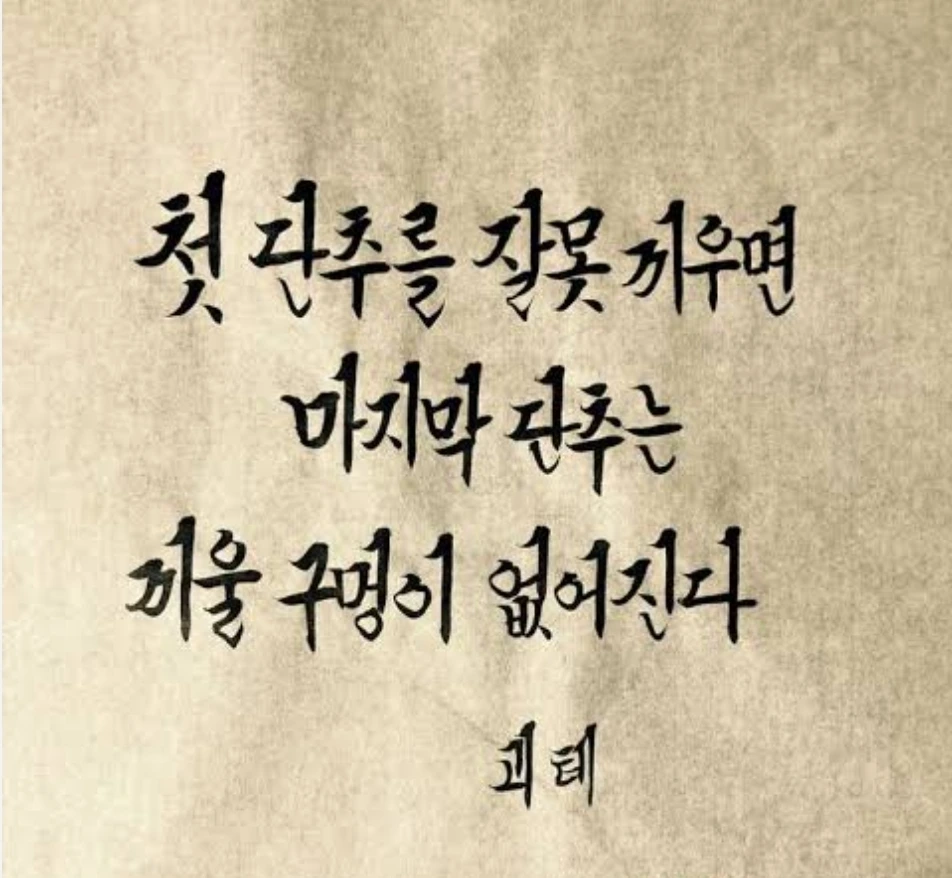 첫 단추를 잘못 끼우면
마지막 단추는
끼울 구멍이 없어진다
괴테